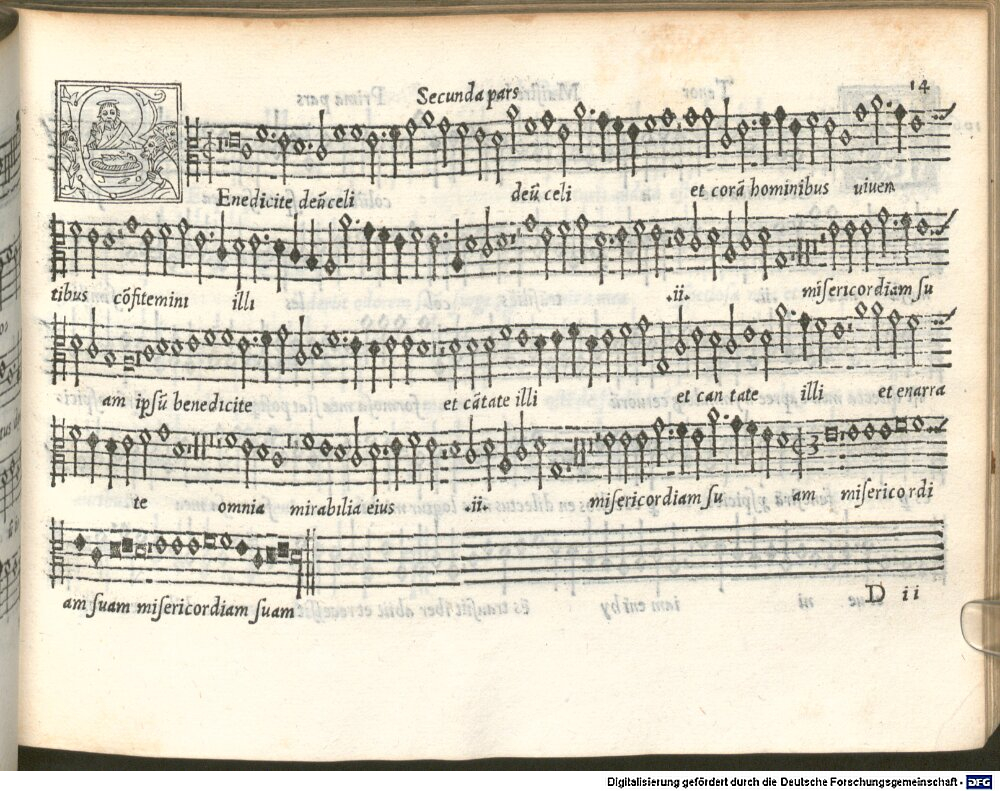 Secunda pars
14
Enedicite deū celi deū celi et corā hominibus uiuen
tibus cōfitemini illi .ii. misericordiam su
am ipsū benedicite et cātate illi et can tate illi et enarra
te omnia mirabilia eius .ii. misericordiam su am misericordi
am suam misericordiam suam
D ii
Digitalisierung gefördert durch die Deutsche Forschungsgemeinschaft - DFG